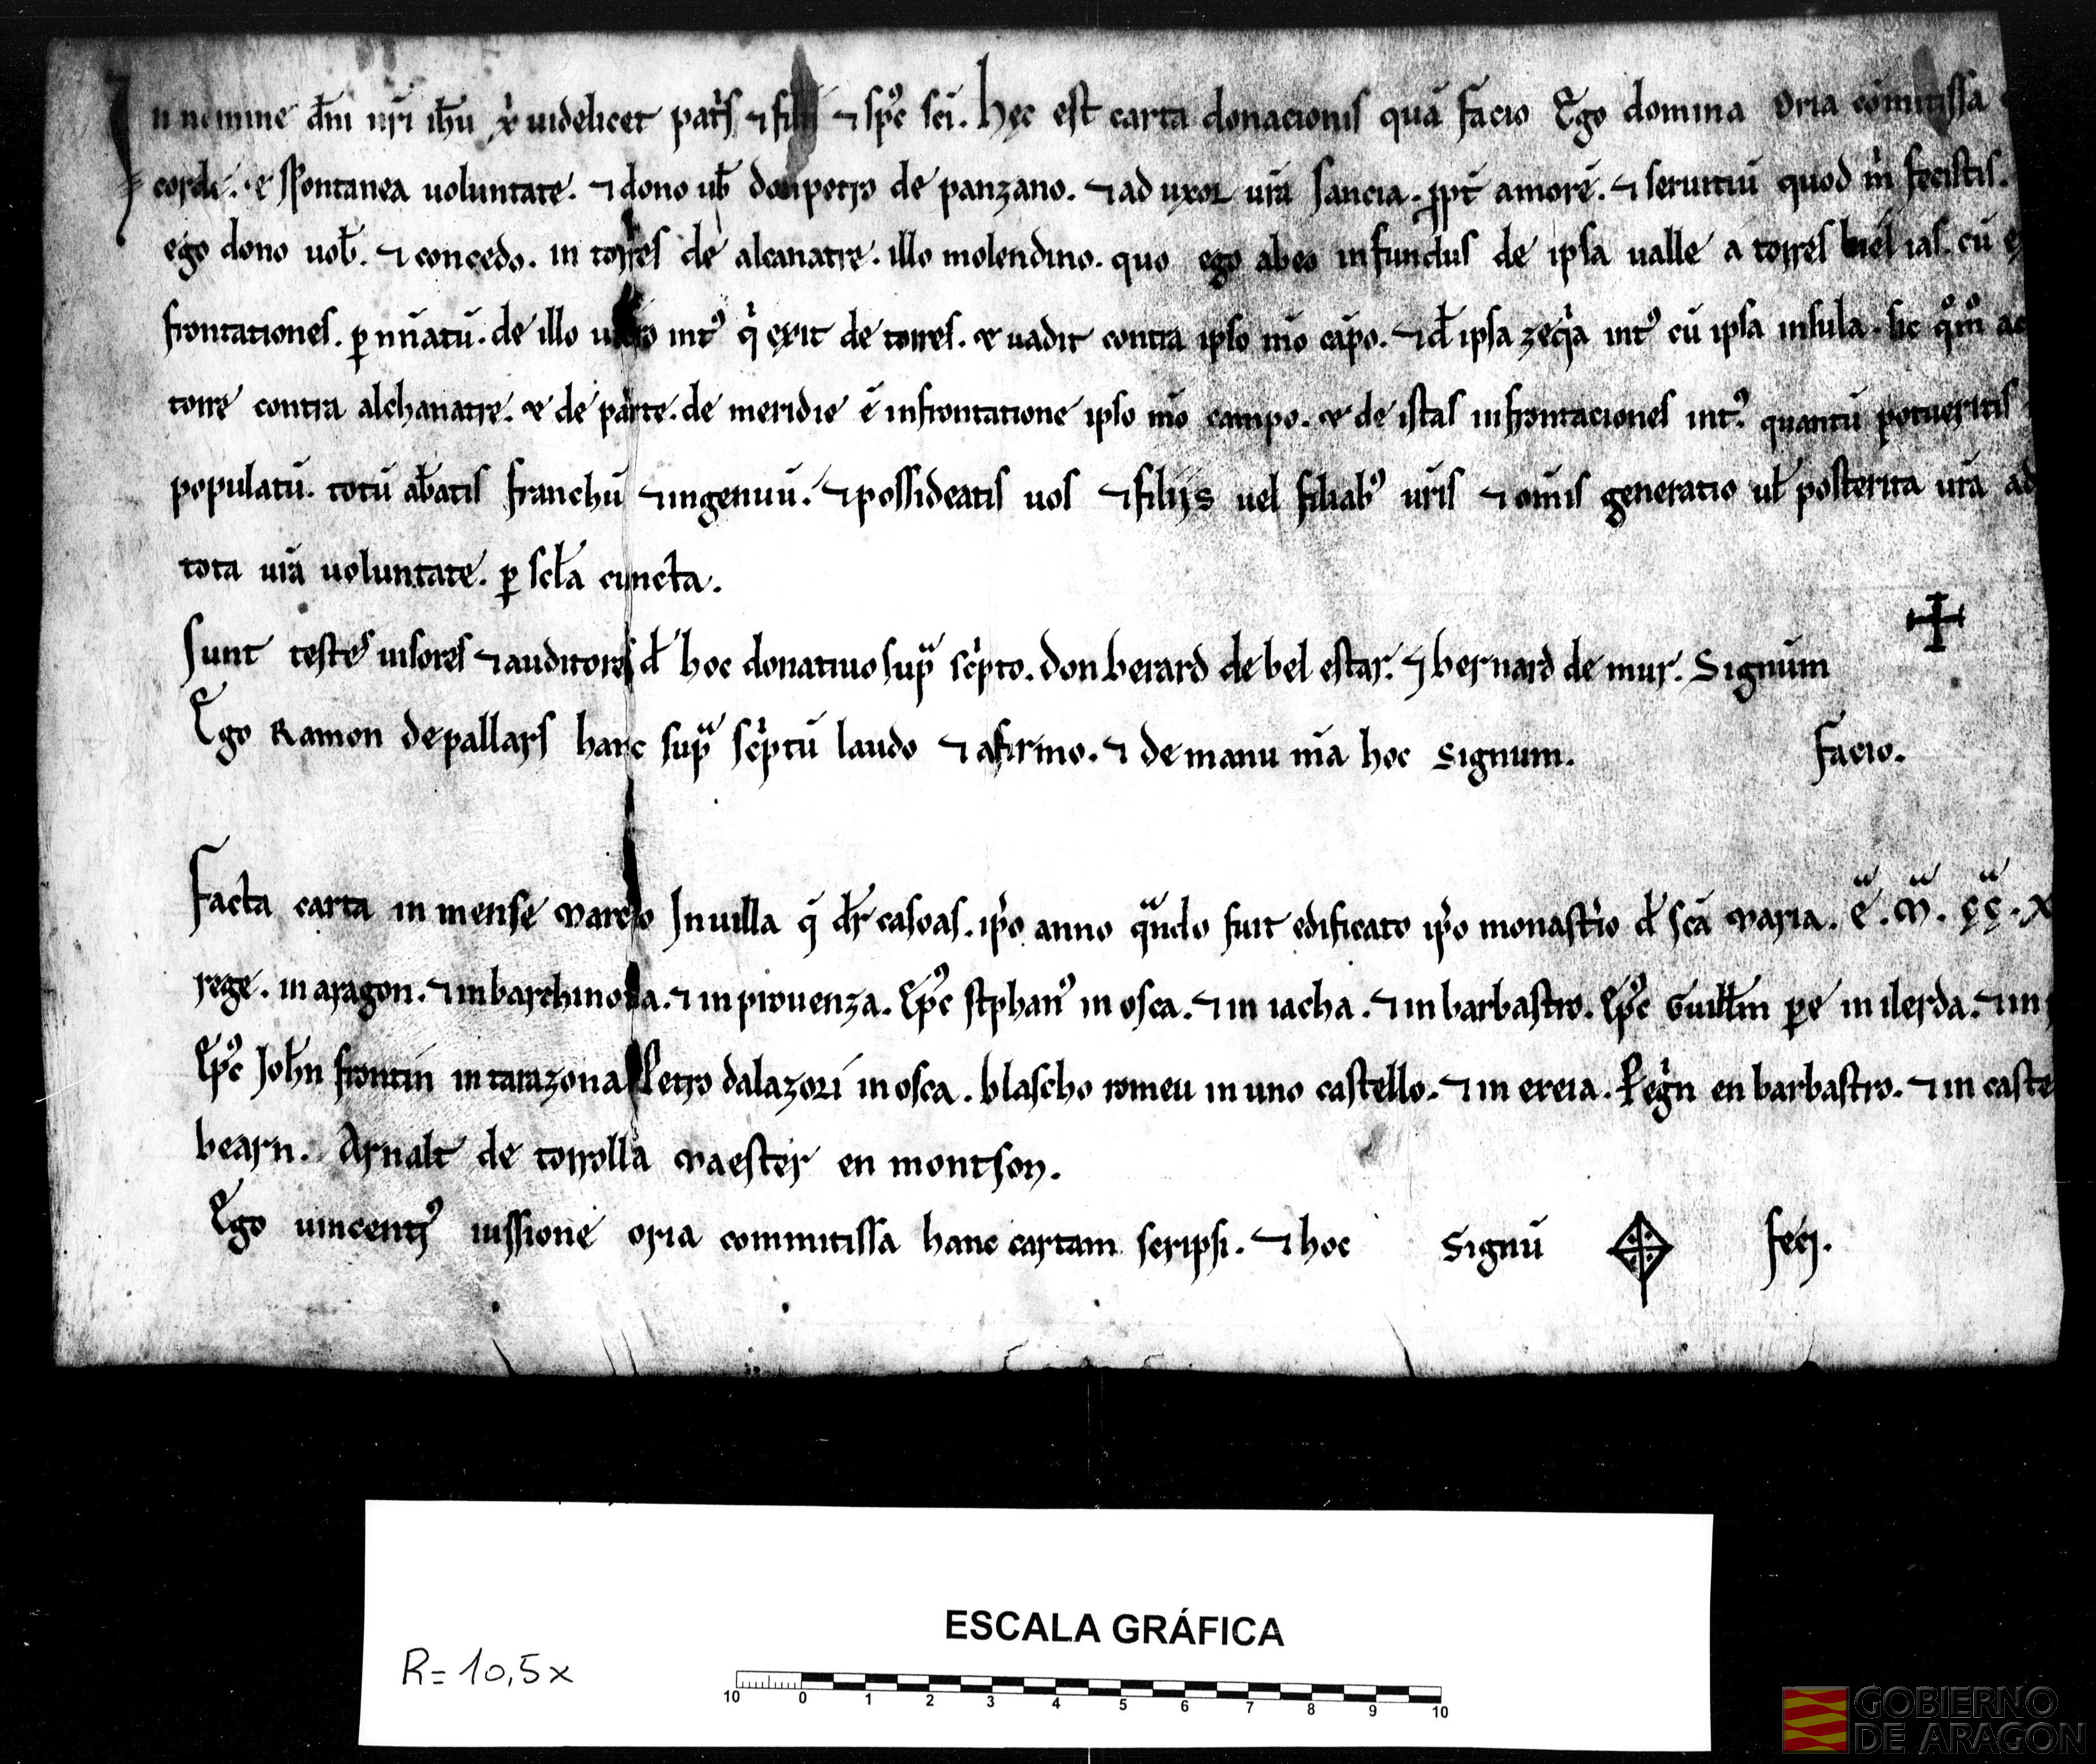 In nomine dn̄i nr̄i ih̄u xp̄ı uidelicet patͥs ⁊ filii ⁊ spc̄ sc̄i. hęc est carta donacionis quā facio Ego domina Oria comitissa
corde. ⁊ spontanea uoluntate. ⁊ dono ub̄ don petro de panzano. ⁊ ad uxor ur̄a sancia. ꝓpt̄ amorē. ⁊ seruitiū quod m̍ fecistis.
ego dono uob̄. ⁊ concedo. in torres de alcanatre. illo molendino. quo ego abeo in fundus de ipsa ualle a torres cū
frontationes. ꝑ nn̄atū. de illo int᾽ qͥ exit de torres. ⁊ uadit contra ipso mō cāpo. ⁊ d̄ ipsa zeqͥa int᾽ cū ipsa insula. sic qͦm̄
torre contra alchanatre. ⁊ de parte. de meridie ē infrontatione ipso mō campo. ⁊ de istas infrontaciones int᾽. quantū potueritis
populatū. totū ab̄atis franchū ⁊ ingenuū. ⁊ possideatis uos ⁊ filijs uel filiab᾽ ur̄is ⁊ om̄is generatio ul̄ posterita ur̄a ad
tota ur̄a uoluntate. ꝑ scl̄a cuncta.
Sunt testes uisores ⁊ auditores d̄ hoc donatiuo supᵃ scͥpto. don berard de bel estar. ⁊ bernard de mur. Signum ✠
Ego Ramon de pallars hanc supᵃ scͥptū laudo ⁊ afirmo. ⁊ de manu m̄a hoc signum. facio.
Facta carta in mense marcio In uilla q̄ dr̄ casoas. ip̄o anno qᵃndo fuit edificato ip̄o monastͥo d̄ sc̄a maria. eᵃ. mᵃ. ççᵃ. x
rege. in aragon. ⁊ in barchinona. ⁊ in prouenza. Ep̄c stphan᾽ in osca. ⁊ in iacha. ⁊ in barbastro. Ep̄c Guillm̄ ꝑe in ilerda. ⁊ in
Ep̄c Joh̄n frontin in tarazona Petro dalazori in osca. blascho romeu in uno castello. ⁊ in ereia. Pegͥn en barbastro. ⁊ in caste
bearn. Arnalt de torrolla maester en montson.
Ego uincenti᾽ iussione oria commitissa hanc cartam scripsi. ⁊ hoc Signū fecj.
ESCALA GRÁFICA
R= 10,5x
10 0 1 2 3 4 5 6 7 8 9 10
GOBIERNO
DE ARAGON